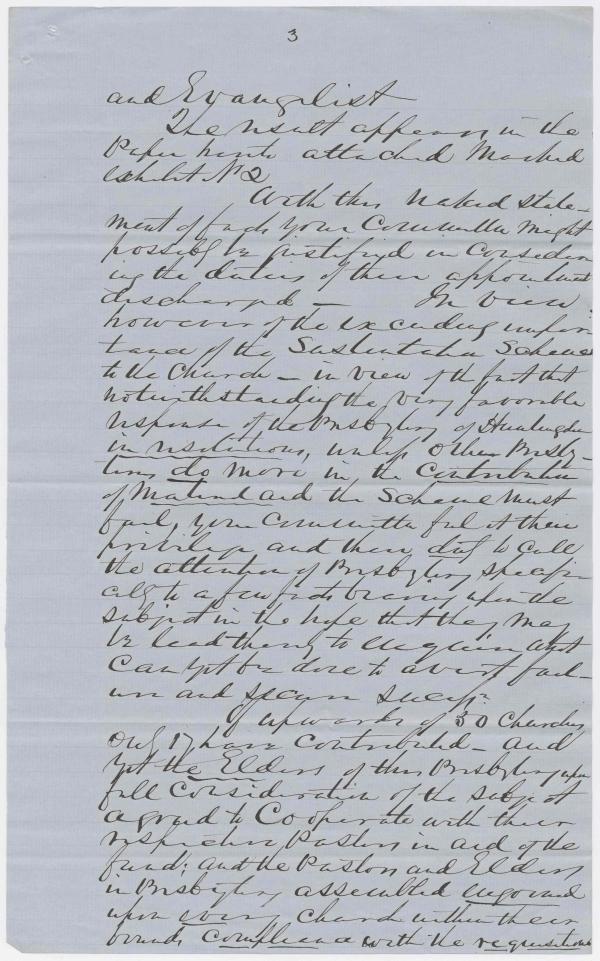 3
and Evangelist
The result appears in the
Paper hereto attached Marked
Exhibit No 2
With this naked state-
ment of facts your Committee might
possibly be justified in consider
ing the duties of their appointment
discharged — In view
however of the exceeding impor
tance of the Sustentation Scheme
to the Church — in view of the fact that
notwithstanding the very favorable
response of the Presbytery of Huntingdon
in resolutions, unless other Presby-
teries do more in the Contribution
of Material aid the Scheme must
fail, your Committee feel it their
privilege and their duty to call
the attention of Presbytery specifi
cally to a few facts bearing upon the
subject in the hope that they may
be lead thereby to enquire what
can yet be done to avert fail-
ure and secure success.
Of upwards of 30 Churches
only 17 have contributed — and
yet the Elders of this Presbytery upon
full consideration of the subject
agreed to Cooperate with their
respective Pastors in aid of the
fund; and the Pastors and Elders
in Presbytery assembled enjoined
upon every Church within their
bounds compliance with the requisitions